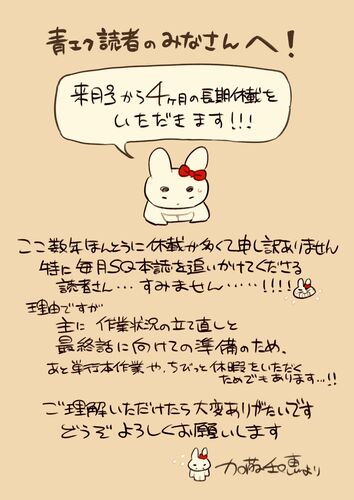 青エク読者のみなさんへ!
来月号から4ヶ月の長期休載を
いただきます!!!
ここ数年ほんとうに休載が多くて申し訳ありません
特に毎月SQ本誌を追いかけてくださる
読者さん…すみません……!!!!
理由ですが
主に作業状況の立て直しと
最終話に向けての準備のため、
あと単行本作業や、ちびっと休暇をいただく
ためでもあります…!!
ご理解いただけたら大変ありがたいです
どうぞよろしくお願いします
加藤和恵より